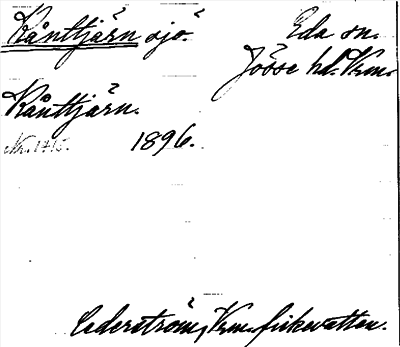 Kånttjärn sjö.
Eda sn.
Jösse hd. Vrm.
Kånttjärn.
1896.
Cederström, Vrm. fiskevatten.